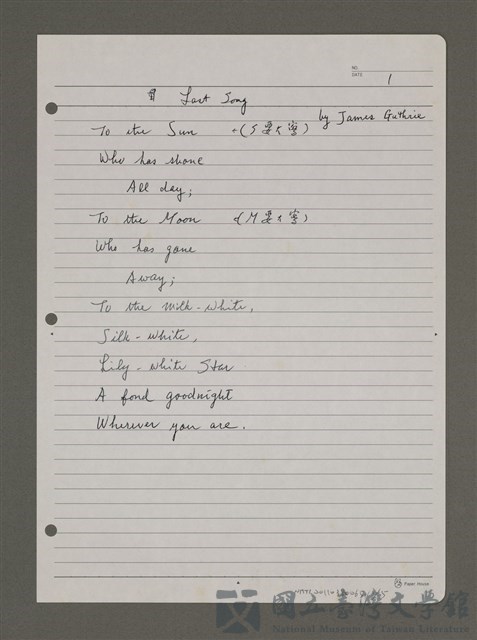 NO.
DATE
1
Last Song
by James Guthrie
To the Sun (S要大寫)
Who has shone
All day;
To the Moon (M要大寫)
Who has gone
Away;
To the milk-white,
Silk-white,
Lily-white Star
A fond goodnight
Wherever you are.
Paper House
國立臺灣文學館
National Museum of Taiwan Literature